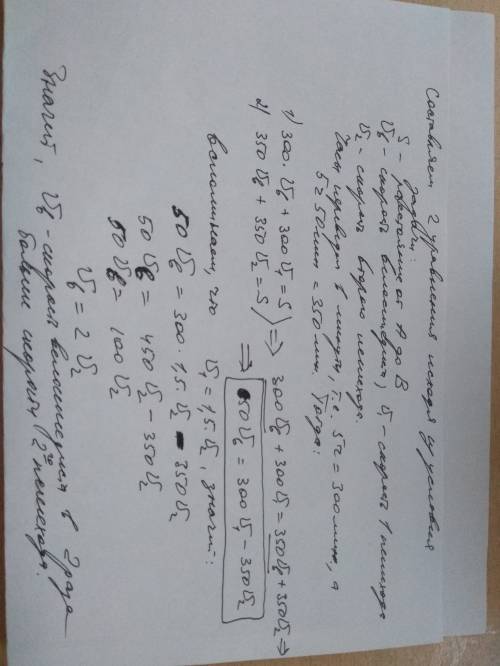 Составляем 2 уравнения исходя из условия
задачи:
S - расстояние от A до B
V_б - скорость велосипедиста, V₁ - скорость 1 пешехода
V₂ - скорость второго пешехода.
Часы переводим в минуты, т.е. 5ч = 300 мин, а
5ч 50мин = 350 мин. Тогда:
1) 300·V_б + 300V₁ = S
2) 350V_б + 350V₂ = S) ⇒ 300V_б + 300V₁ = 350V_б + 350V₂ ⇒
⇒ 50V_б = 300V₁ - 350V₂
вспоминаем, что V₁ = 1,5·V₂, значит:
50V_б = 300·1,5·V₂ - 350V₂
50V_б = 450V₂ - 350V₂
50V_б = 100V₂
V_б = 2V₂
Значит, V_б - скорость велосипедиста в 2 раза
больше скорости 2го пешехода.